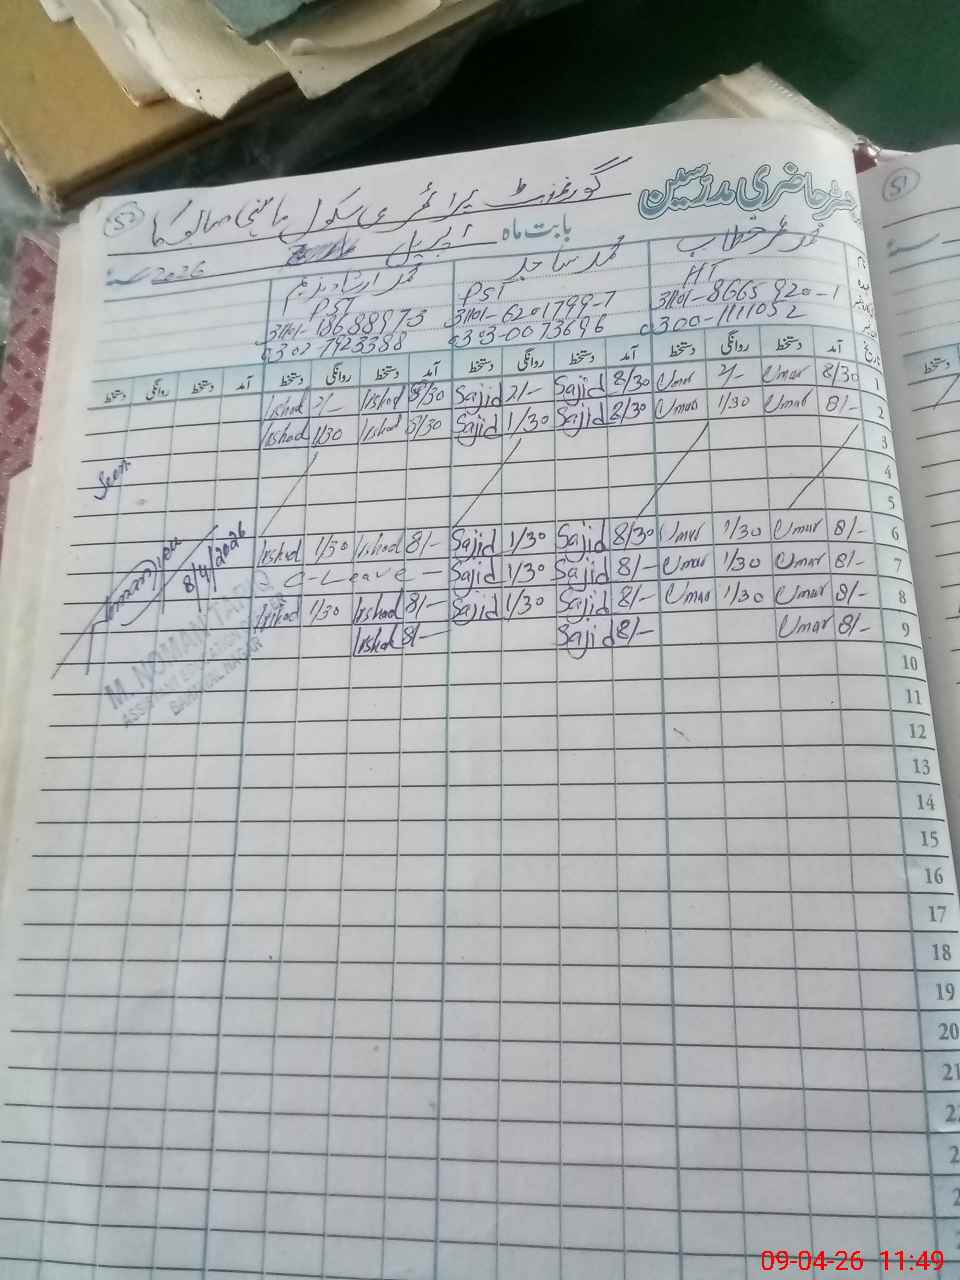 52
51
رجسٹر حاضری مدرسین گورنمنٹ پرائمری سکول
بابت ماہ اپریل 2026ء
محمد عمر خطاب محمد ساجد محمد ارشاد ندیم
HT PST PST
31101-8665920-1 31101-6201799-7 31101-1868897-3
0300-1111052 0303-0073696 0302-7923388
تاریخ آمد دستخط روانگی دستخط آمد دستخط روانگی دستخط آمد دستخط روانگی دستخط آمد دستخط روانگی دستخط
1 8/30 Umar 2/- Umar 8/30 Sajid 2/- Sajid 8/30 Irshad 2/- Irshad
2 8/- Umar 1/30 Umar 8/30 Sajid 1/30 Sajid 8/30 Irshad 1/30 Irshad
3
4
5
6 8/- Umar 1/30 Umar 8/30 Sajid 1/30 Sajid 8/- Irshad 1/30 Irshad
7 8/- Umar 1/30 Umar 8/- Sajid 1/30 Sajid C-Leave
8 8/- Umar 1/30 Umar 8/- Sajid 1/30 Sajid 8/- Irshad 1/30 Irshad
9 8/- Umar 8/- Sajid 8/- Irshad
Seen
8/4/2026
M. NOMAN TARIQ
ASSISTANT EDUCATION OFFICER
BAHAWALNAGAR
10
11
12
13
14
15
16
17
18
19
20
21
09-04-26 11:49